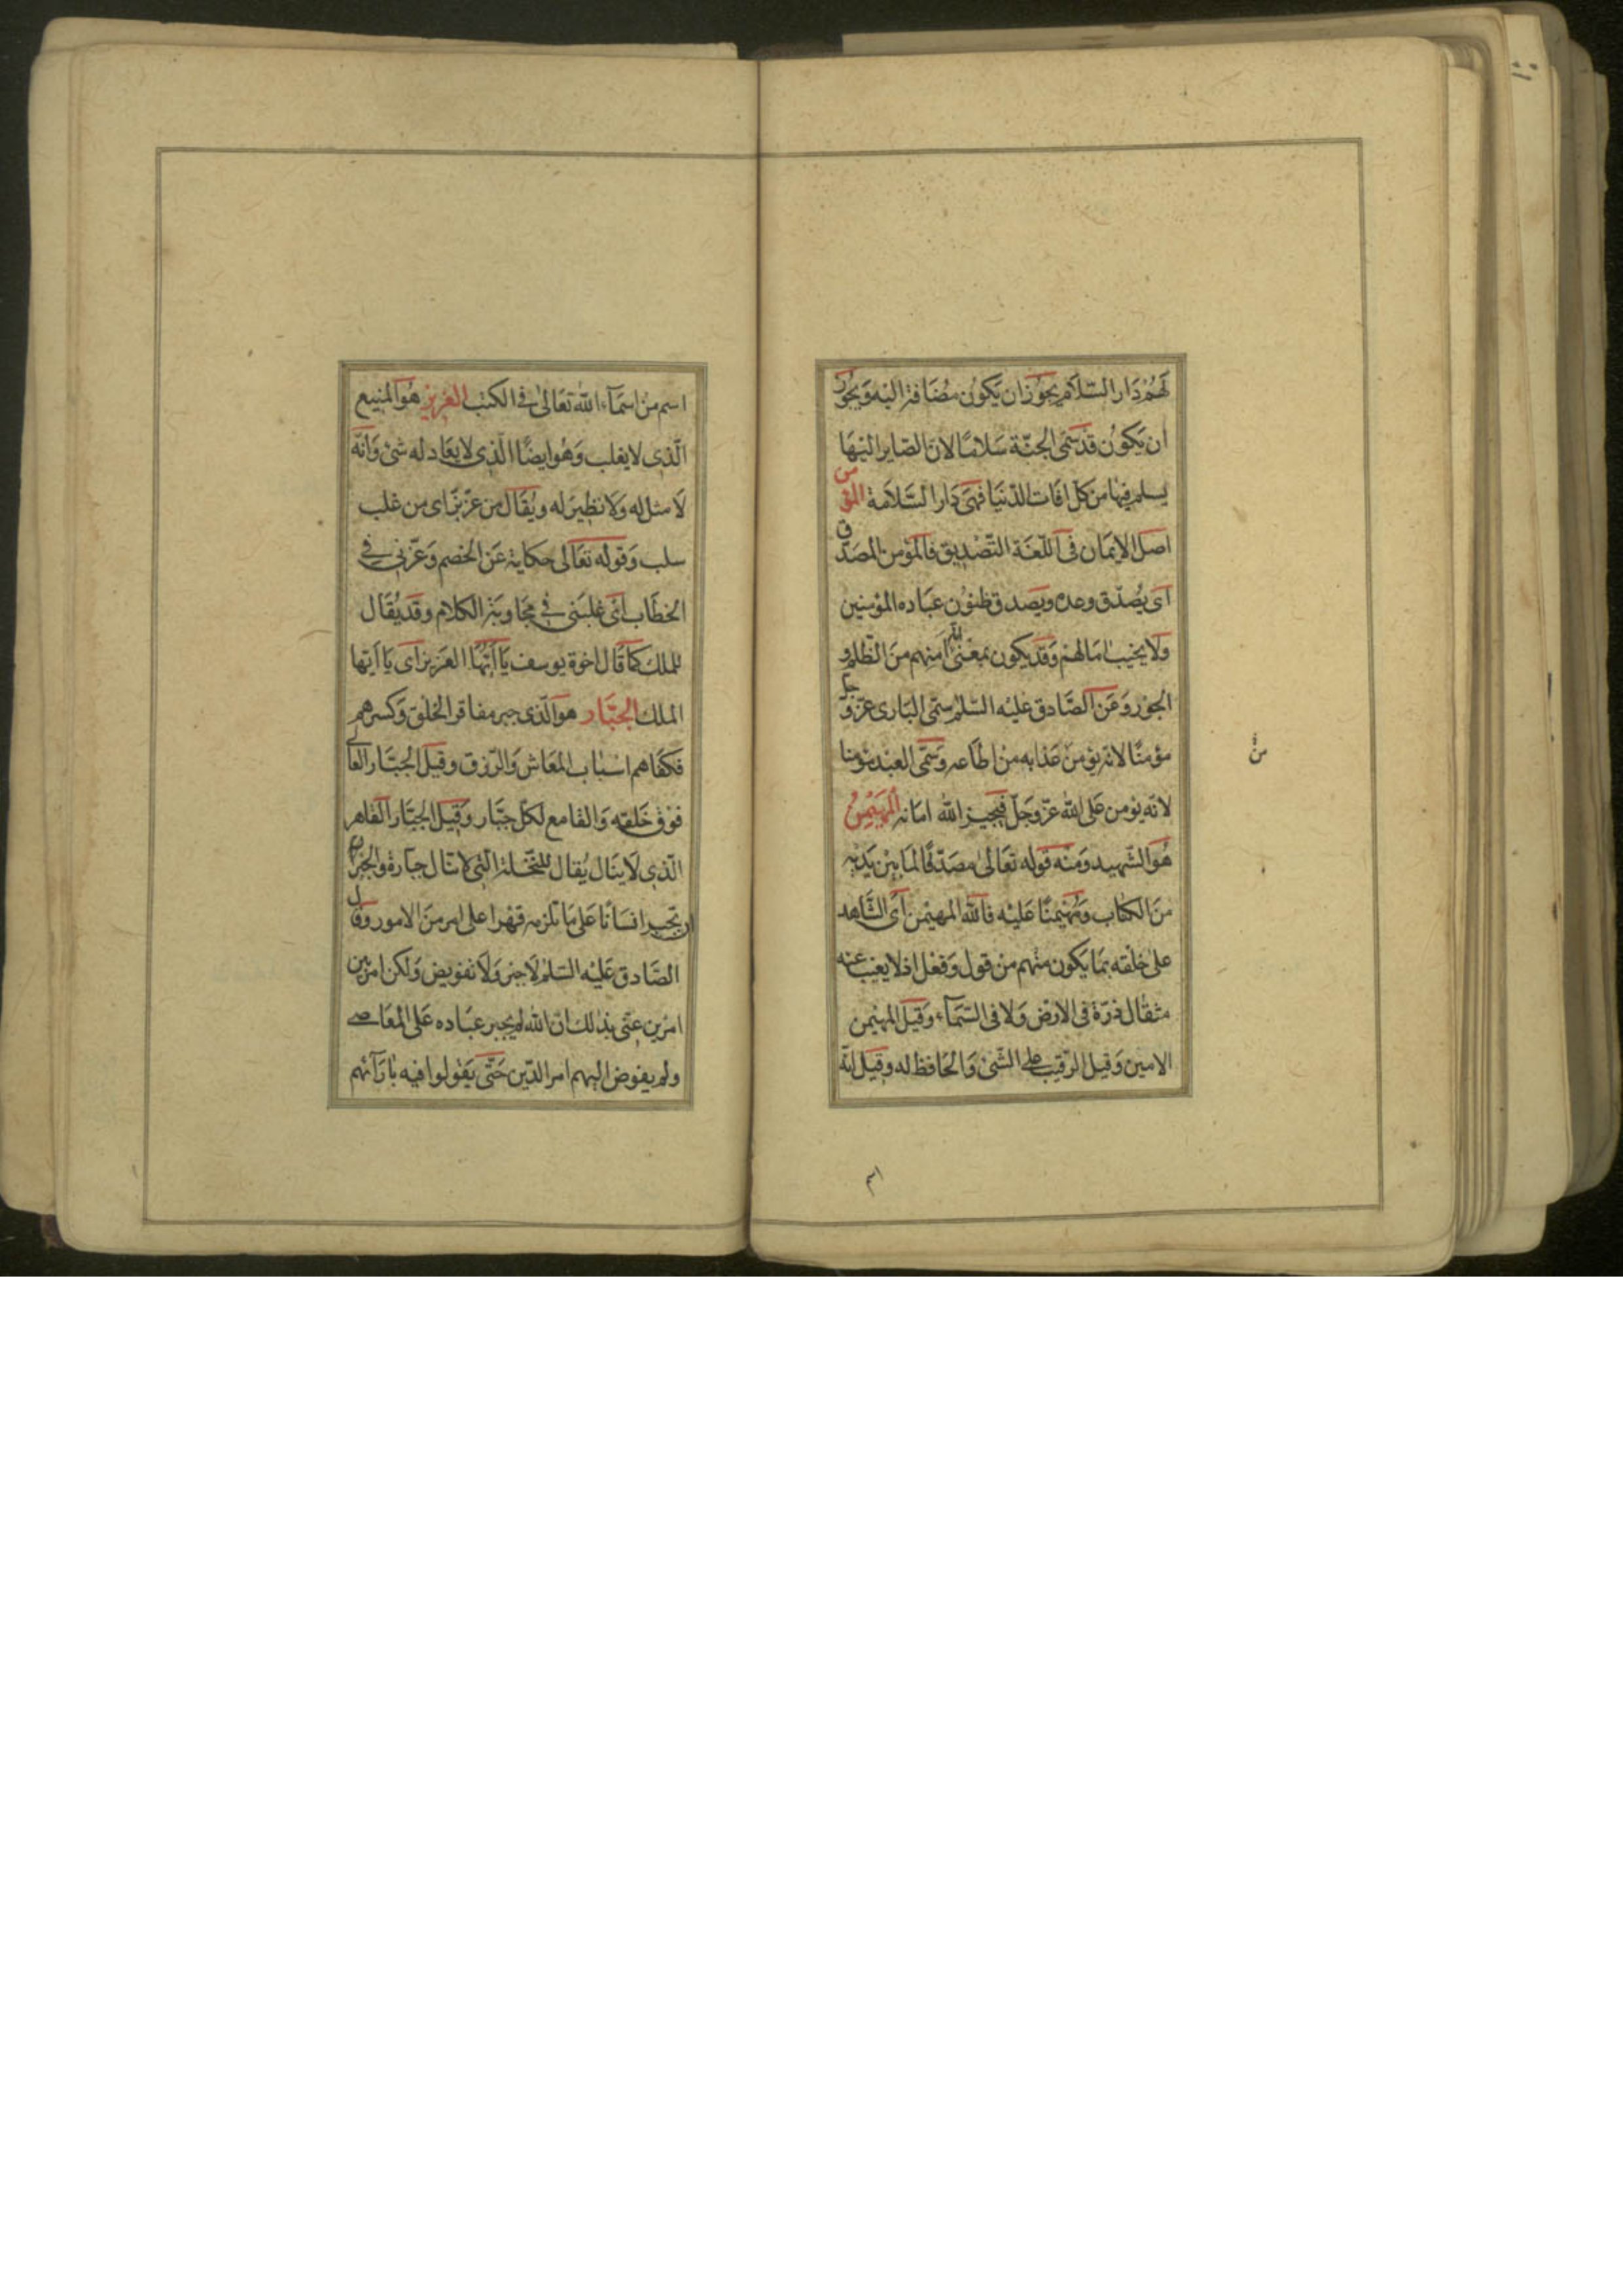 لَهُمْ دَار السّلَام يجُوز ان يَكُون مُضَافة اليْه وَيجُوز
ان يَكُون قدْ سَمّى الجنّة سَلامًا لان الصّاير اليْهَا
يسلم فيْها من كلّ افَات الدّنيَا فهىَ دَار السَّلامَة المؤمن
اصل الايمَان فى اللّغَة التّصْديق فالمؤمن المصَدّق
اى يُصَدّق وعده ويصَدق ظنوُن عبَاده المؤمنين
ولا يخيب امَالهمْ وَقدْ يكون بمعْنى انّه امنهم منَ الظّلم و
الجوْر وَعَن الصَّادق عَليْه السّلم سمّى البَارى عزّ وَجلّ
مؤمنًا لانّه يؤمنُ منْ عَذابه منْ اطَاعه وَسَمّى العبْد مؤمنا
لانّه يؤمن عَلى الله عزّ وَجَلّ فيجيز الله امَانه المُهَيْمِنُ
هُوَ الشّهيد وَمنْه قوله تعَالىٰ مصَدّقًا لمَا بيْن يَديْه
منَ الكتَاب وَمُهَيْمنًا عَليْه فالله المهيْمن اى الشّاهد
علىٰ خلْقه بمَا يَكون منْهم منْ قول وَفعْل اذ لا يغيب عنه
مثقَال ذرّة فى الارْض وَلا فى السّمَآء وَقيل المهيْمن
الامين وَقيل الرّقيب على الشّىء وَالحَافظ له وقيل انّه
اسم
اسم منْ اسمَآء الله تعَالىٰ فى الكتب العَزيز هُو المنيع
الّذى لا يغلب وَهُو ايضًا الّذى لا يعَادله شىء وَانّه
لَا مثل له وَلا نظيرَ له ويُقَال من عَزّ بَزّ اى من غلب
سلب وَقوله تعَالى حكاية عَن الخصم وَعَزّنى فى
الخطَاب اى غلبَنى فى مجَاوبَة الكلام وقد يُقَال
للملك كمَا قَال اخوة يوسف يَا اَيّهَا العَزيز اى يَا اَيّها
الملك الجبَّار هو الّذى جبر مفاقر الخلْق وَكسرهم
فكفَاهم اسْبَاب المعَاش وَالرّزق وقيل الجبّار العَالى
فوْق خَلقه وَالقامع لكلّ جبّار وَقيل الجبّار القاهر
الّذى لَا ينَال يُقال للنّخْلة الّتى لا تنَال جبّارة وَالجبْر
ان تجبر انسَانًا عَلى مَا تلزمه قهْرا على امر منَ الامور وقَال
الصَّادق عَليْه السّلمْ لَا جبْر وَلَا تفويض وَلكن امْر بين
امرْين عنَى بذٰلك انّ الله لم يجبر عبَاده عَلى المعَاصى
ولم يفوض اليهم امر الدّين حَتّى يقولوا فيه بٰارَآئهم